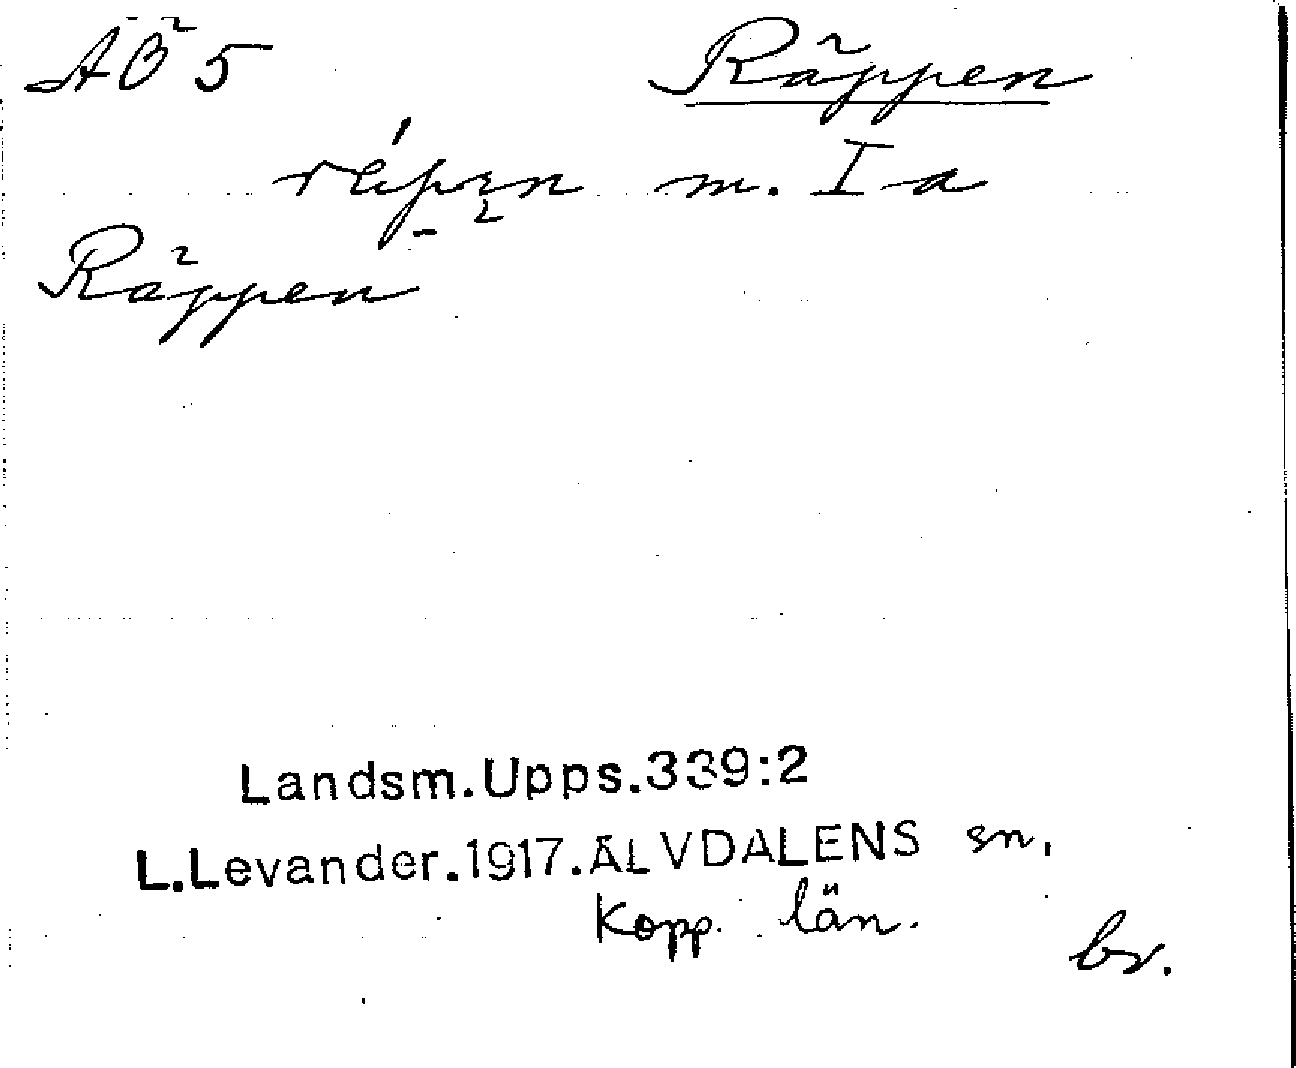 AÖ 5 Räppen
m. I a
Räppen
Landsm. Upps. 339:2
L. Levander. 1917. ÄLVDALENS sn.
Kopp. län.
br.